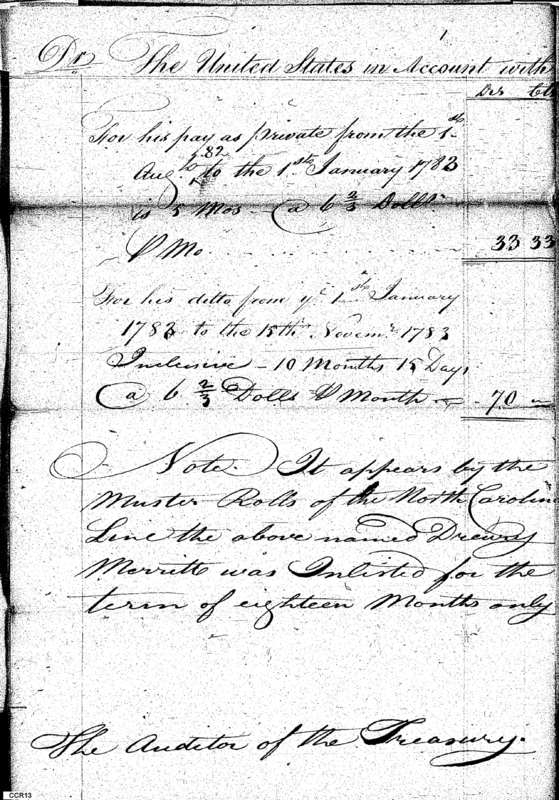 Dr The United States in Account with
Drs Cts
For his pay as private from the 1st
Augt 82 to the 1st January 1783
is 5 Mos @ 6 2/3 Dolls
℘ Mo. 33 33
For his ditto from ye 1st January
1783 to the 15th Novemr 1783
Inclusive - 10 Months 15 Days
@ 6 2/3 Dolls ℘ Month 70 -
Note. It appears by the
Muster Rolls of the North Carolin
Line the above named Drewry
Merritt was Inlisted for the
term of eighteen Months only
The Auditor of the Treasury.
CCR13